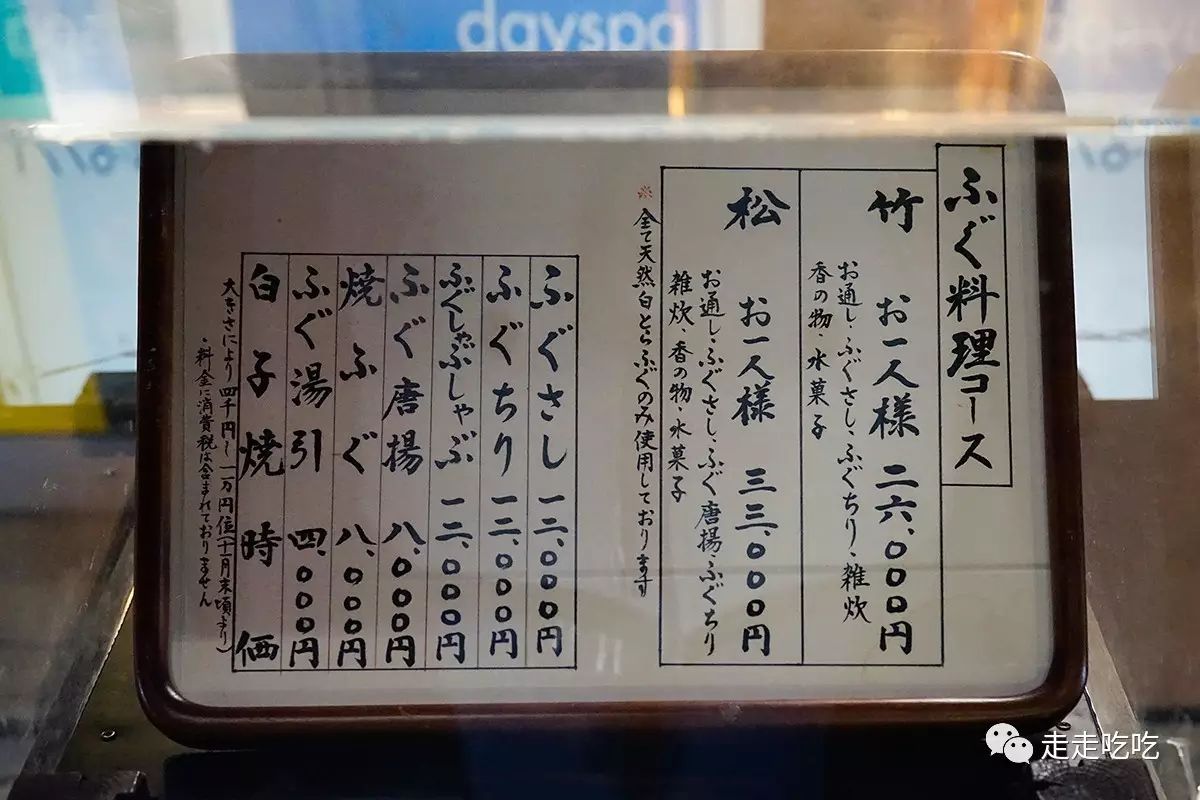 dayspa
ふぐ料理コース
竹 お一人様 二六、〇〇〇円
お通し・ふぐさし・ふぐちり・雑炊
香の物・水菓子
松 お一人様 三三、〇〇〇円
お通し・ふぐさし・ふぐ唐揚・ふぐちり
雑炊・香の物・水菓子
※全て天然白とらふぐのみ使用しております
ふぐさし 一二、〇〇〇円
ふぐちり 一二、〇〇〇円
ふぐしゃぶしゃぶ 一二、〇〇〇円
ふぐ唐揚 八、〇〇〇円
焼ふぐ 八、〇〇〇円
ふぐ湯引 四、〇〇〇円
白子焼 時価
大きさにより四千円～一万円位(十一月末頃より)
・料金に消費税は含まれておりません
走走吃吃